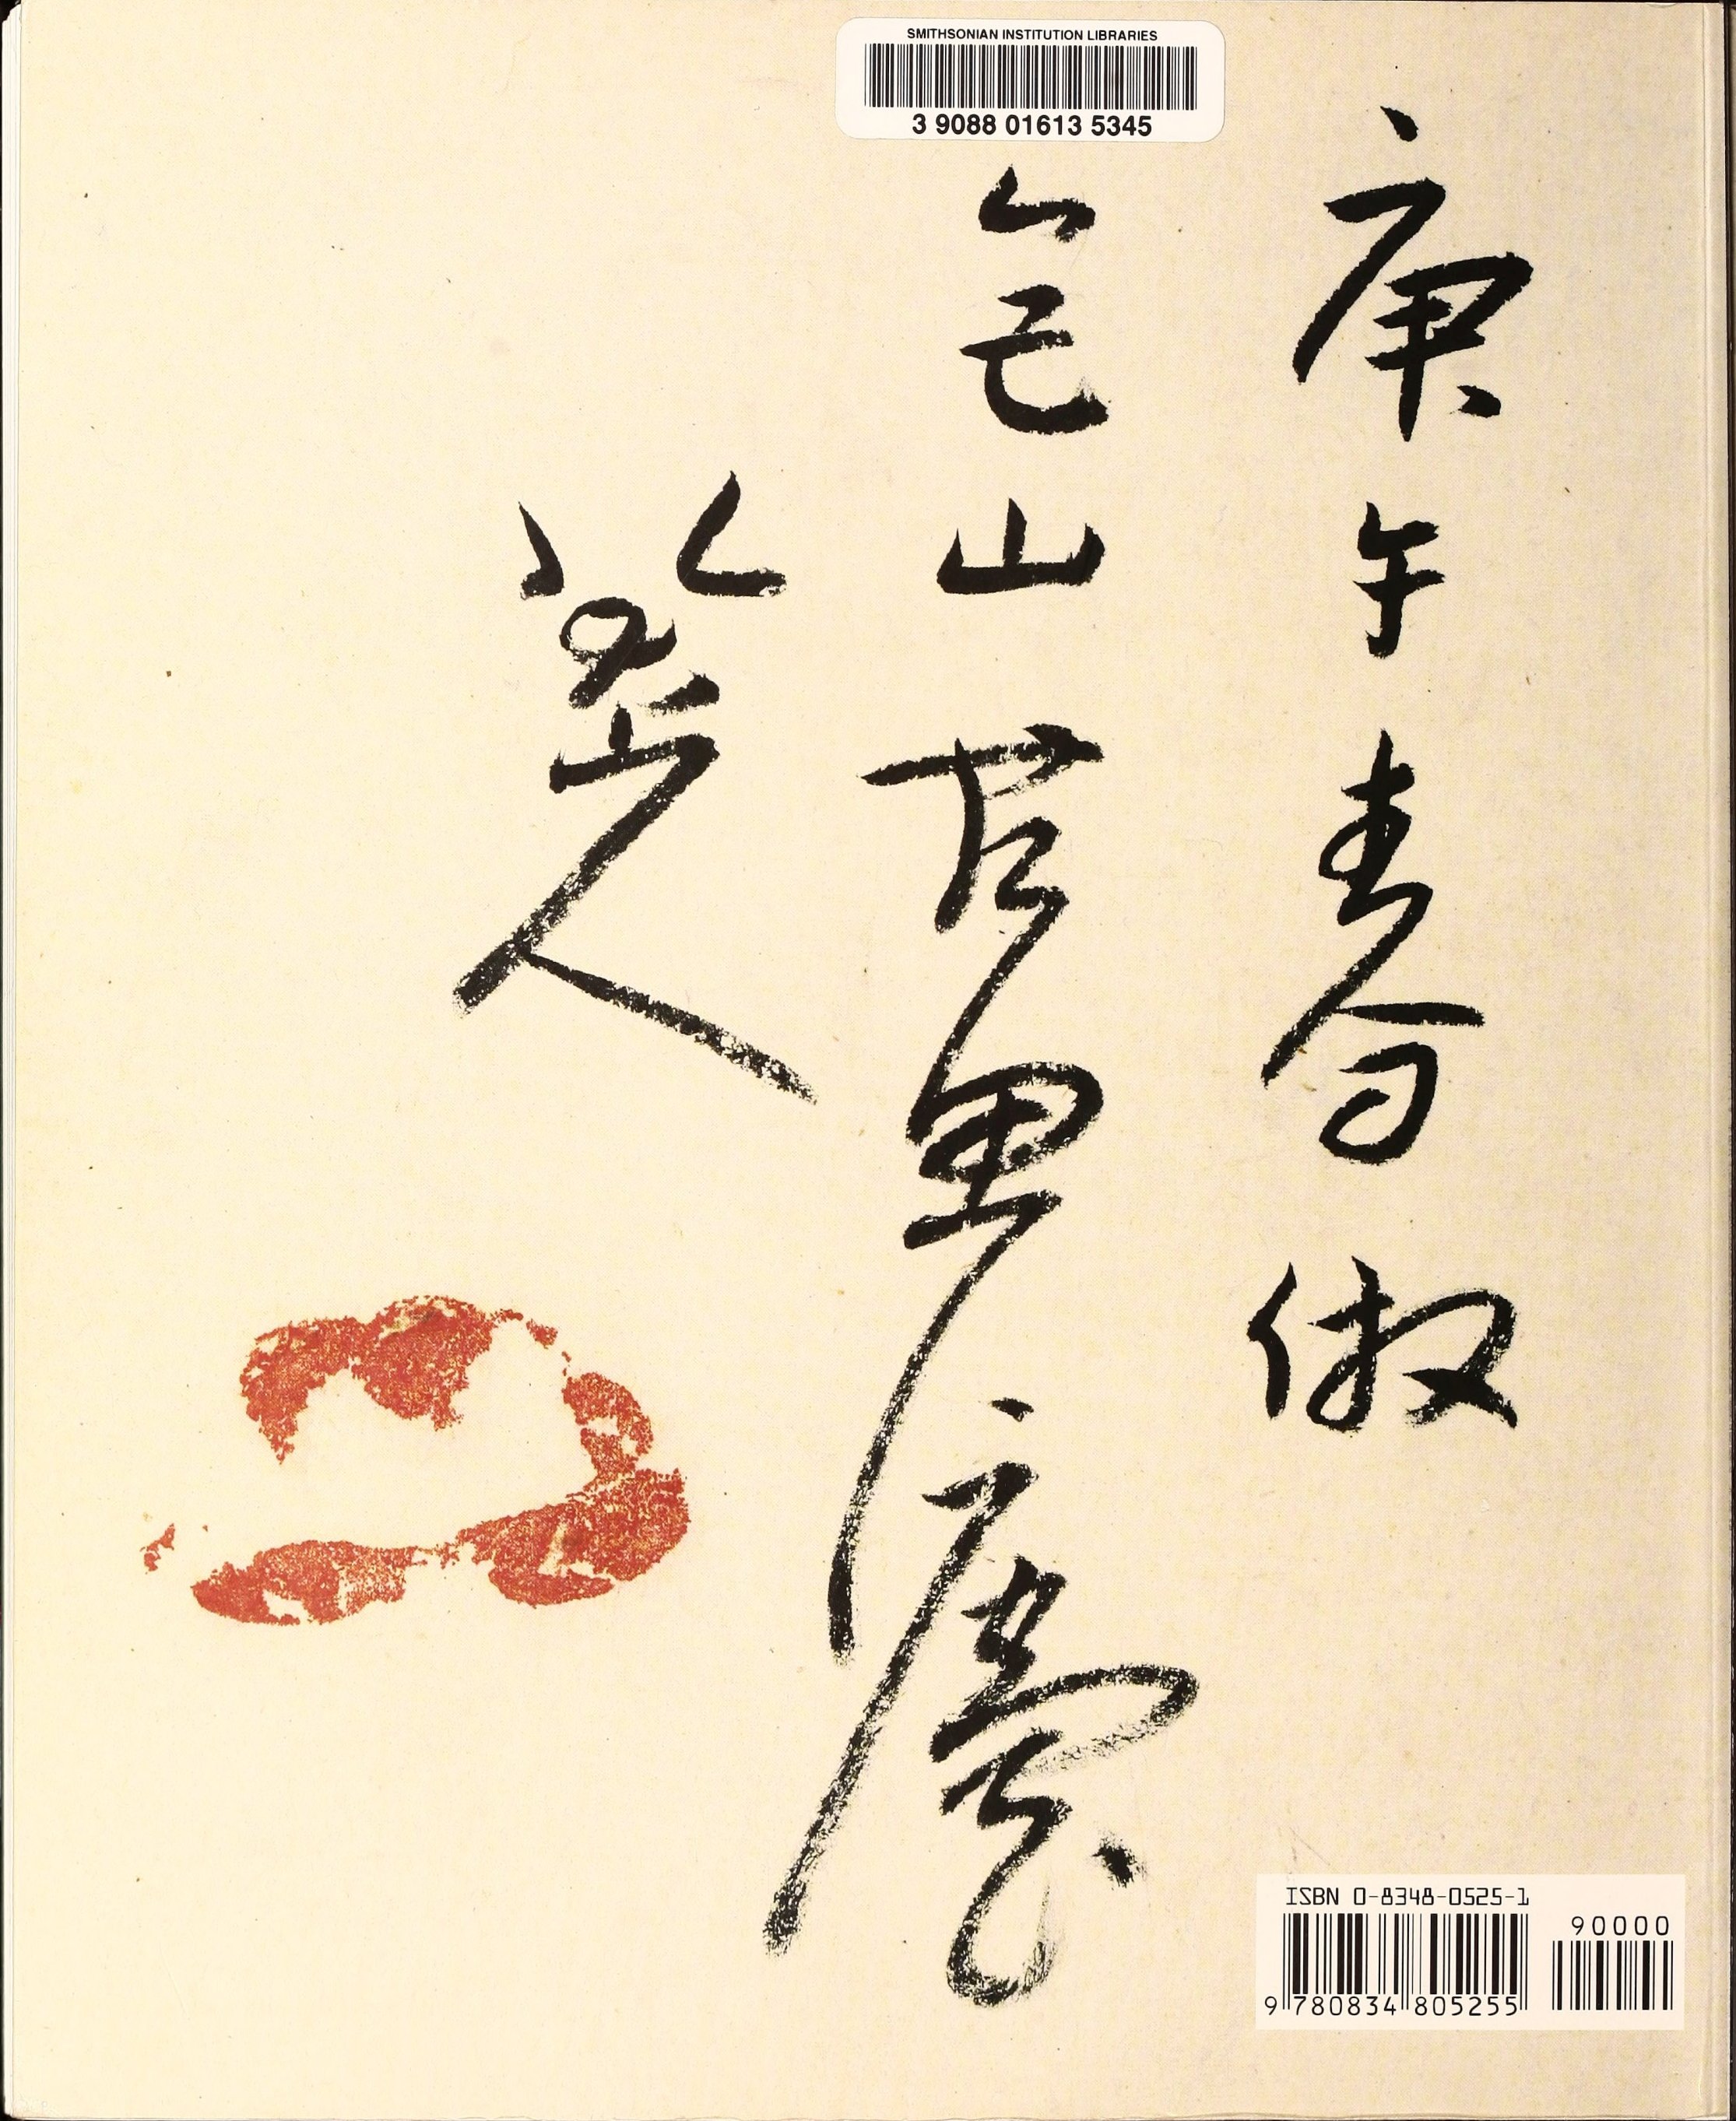 SMITHSONIAN INSTITUTION LIBRARIES
3 9088 01613 5345
庚午春倣
包山
八大山人
ISBN 0-8348-0525-1
90000
9 780834 805255